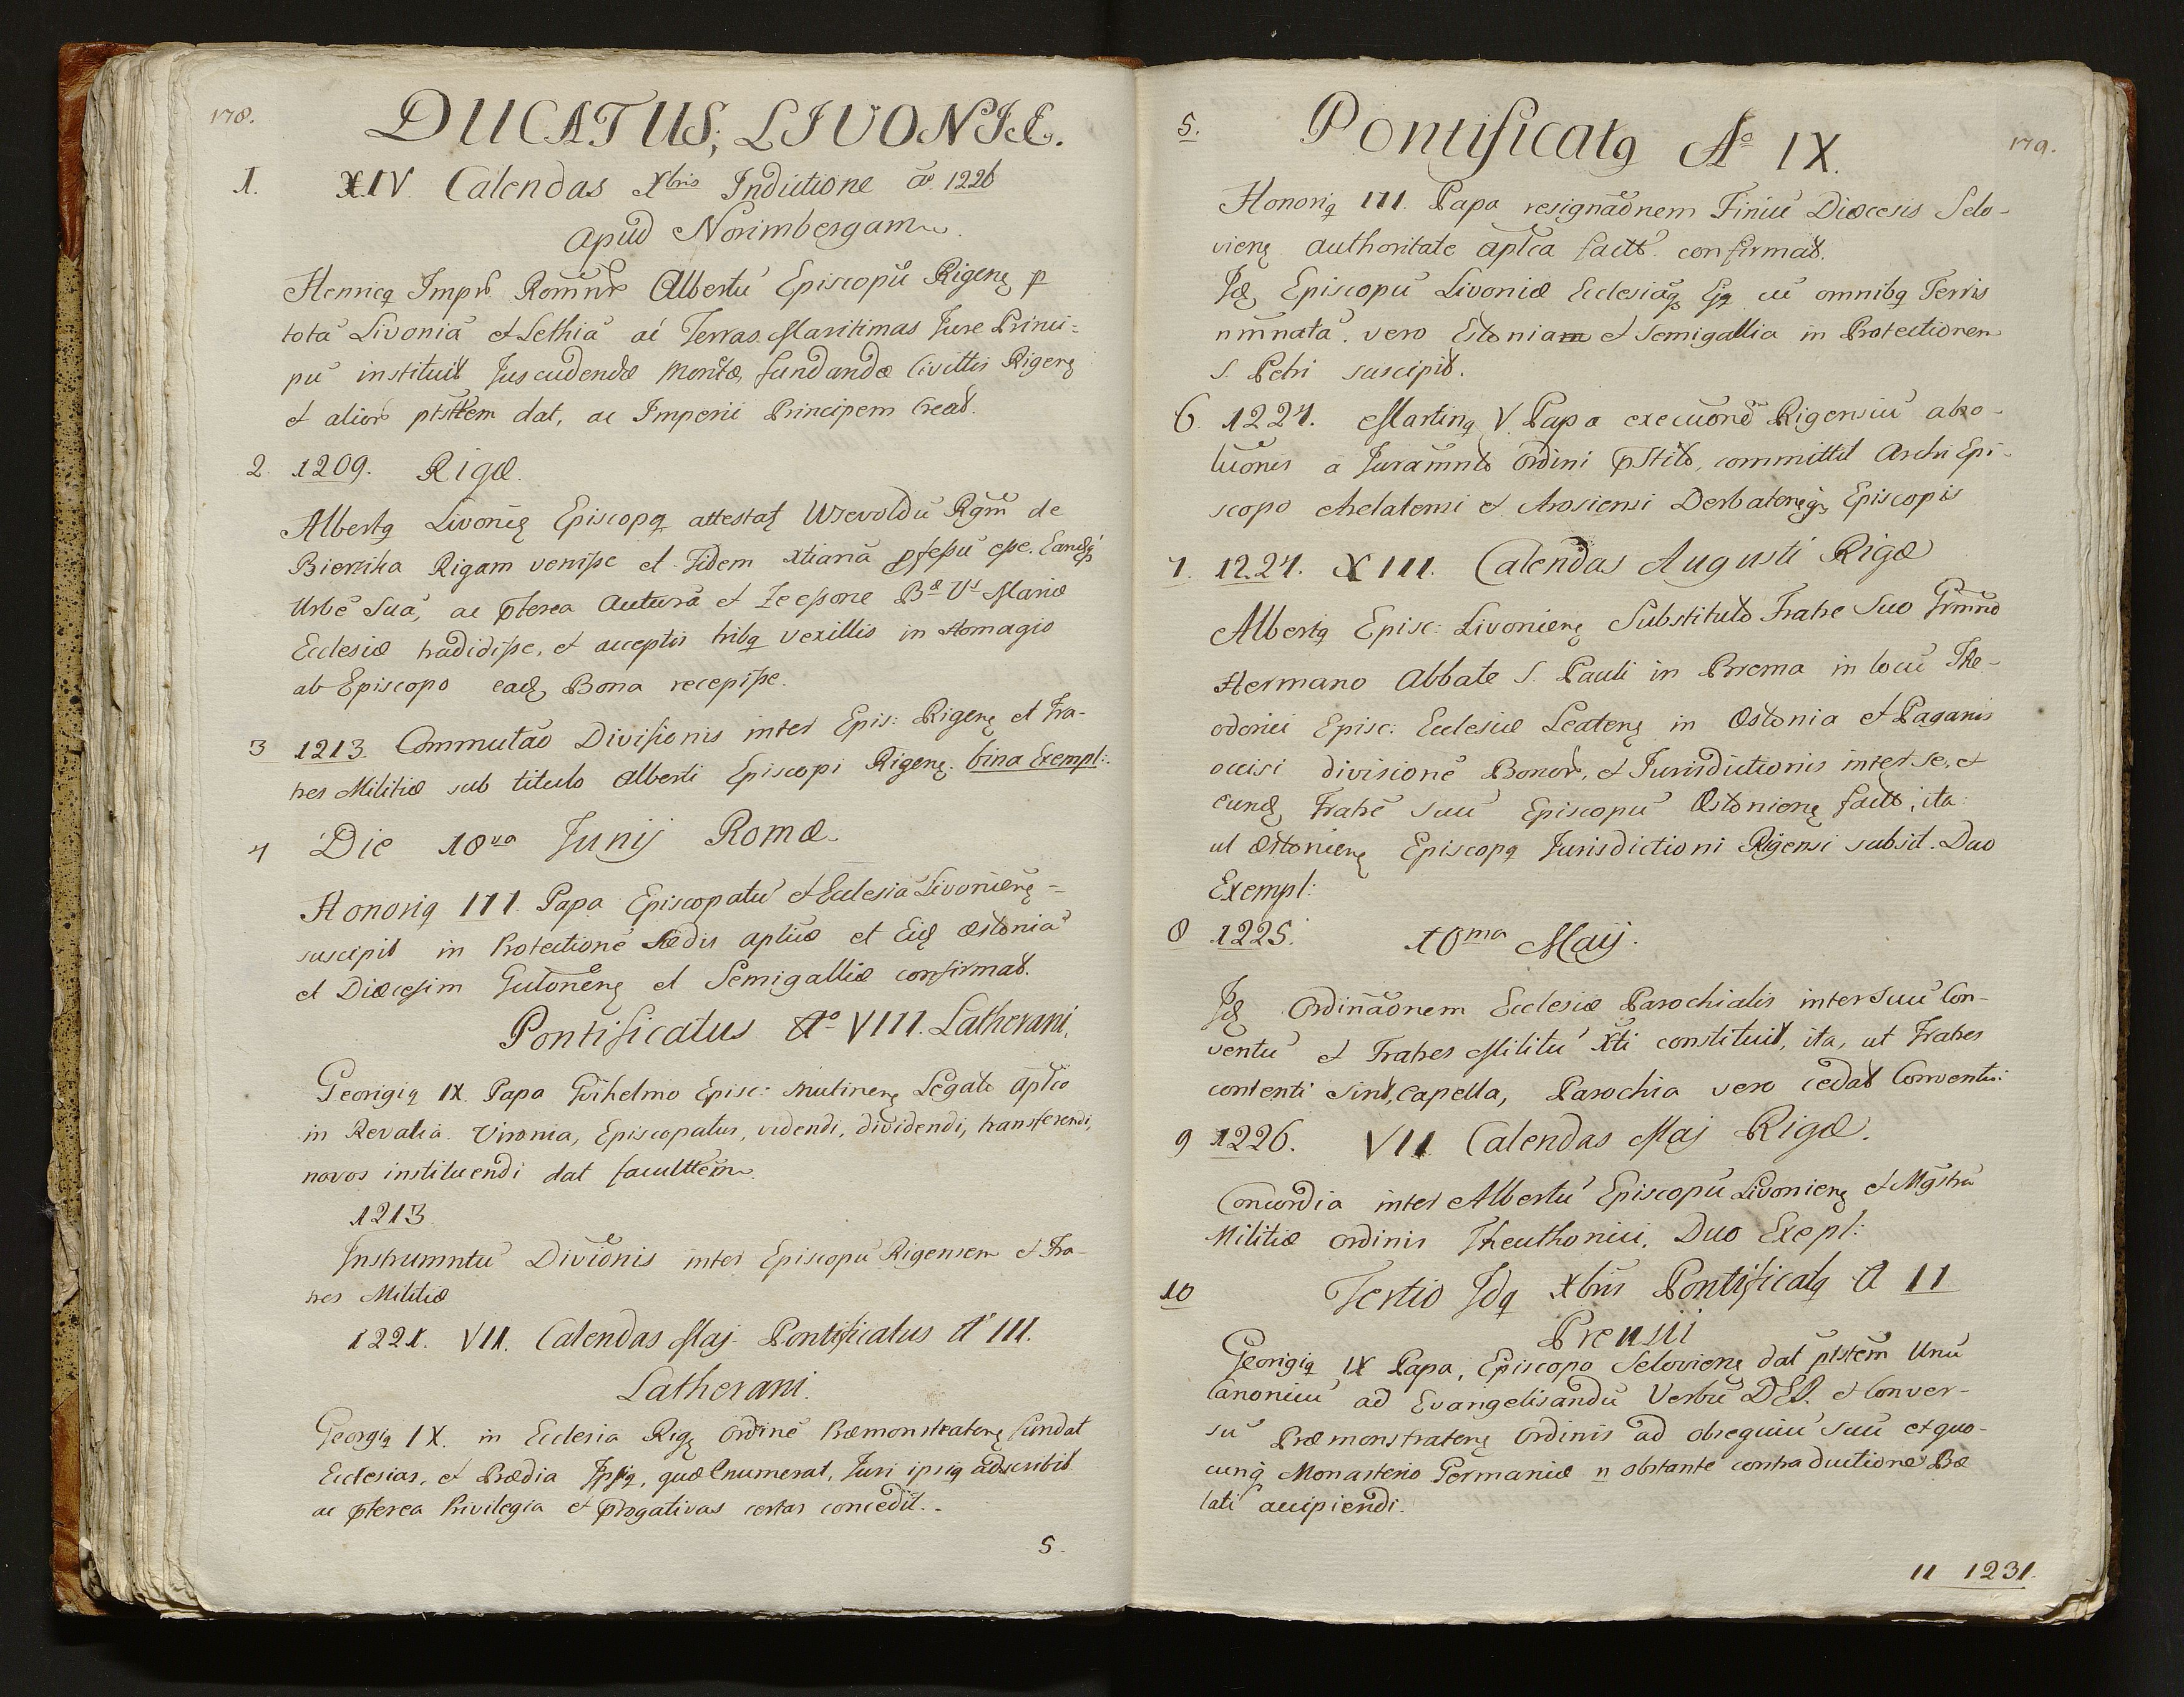 178.
DUCATUS, LIVONIÆ.
1. XIV Calendas Xbris Indictione aõ 1226
apud Norimbergam
Henricq Impr Romnr Albertũ Episcopũ Rigenę p
totã Livoniã et Lethiã ac Terras Maritimas Jure Princi=
pũ instituit Jus cudendæ Monetæ, fundandæ Civittis Rigenę
et alior ptsttem dat, ac Imperii Principem Creat.
2. 1209. Rigæ.
Albertq Livonię Episcopq attestatę Wsevoldũ Rgm de
Bierzika Rigam venisse et Fidem Xtianã pfessũ esse. Eandęq
Urbẽ Suã, ac pterea Autura et Zeessone Bæ Vs Mariæ
Ecclesiæ tradidisse, et acceptis tribq vexillis in Homagio
ab Episcopo eadę Bona recepisse.
3 1213 Commutaõ Divisionis inter Epis: Rigenę et Fra-
tres Militiæ sub titulo Alberti Episcopi Rigenę. bina Exempl:.
4 Die 18va Junij Romæ
Honoriq III. Papa Episcopatũ et Ecclesiã Livonienę =
suscipit in Protectionẽ Sedis aplicæ et Eidę Æstoniã
et Diæcesim Gutonenę et Semigalliæ confirmat.
Pontificatus Aº VIII. Latherani,
Georigiq IX. Papa Guihelmo Episc: Mutinenę Legato aplco
in Revalia. Vironia, Episcopatus, videndi, dividendi, transferendi,
novos instituendi dat facultem.
1213
Instrumntũ Diviõnis inter Episcopũ Rigensem et Fra-
tres Militiæ
1221. VII. Calendas Maj Pontificatus Aº III.
Latherani.
Georgiq IX. in Ecclesia Rigę Ordinẽ Præmonstratenę fundat
Ecclesias, et Prædia Ipsiq, quæ Enumerat, Juri ipsiq adscribit
ac pterea Privilegia et progativas certas concedit.-
5.
179.
5. Pontificatq Aº IX.
Honoriq III. Papa resignaõnem Finiũ Diæcesis Selo-
vienę Authoritate aplca factt confirmat.
Idę Episcopũ Livoniæ Ecclesiãqę Eiq cũ omnibq Terris
nmnata. vero Estonia et Semigallia in Protectionem
S. Petri suscipit.
6. 1224. Martinq V. Papa execuõnẽ Rigensiũ abso-
luõnis a Juramnto Ordini pstito, committit Archi Epi-
scopo Arelatensi et Arosiensi Derbatenęqę Episcopis
7. 1224. XIII. Calendas Augusti Rigæ
Albertq Episc: Livonienę Substituto Fratre Suo Grmno
Hermano Abbate S. Pauli in Brema in locũ The-
odorici Episc: Ecclesiæ Leatenę in Æstonia et Paganis
occisi divisionẽ Bonor, et Jurisdictionis inter se, et
eundę Fratrẽ Suũ Episcopũ Æstonienę facto, ita:
ut Æstonienę Episcopq Jurisdictioni Rigensi subsit. Duo
Exempl:
8 1225. 10ma Maij.
Idę Ordinaõnem Ecclesiæ Parochialis inter Suũ Con-
ventũ et Fratres Militũ Xti constituit, ita, ut Fratres
contenti sint, Capella, Parochia vero cedat Conventui
9 1226. VII Calendas Maj Rigæ.
Concordia inter Albertũ Episcopũ Livonienę et Mgstrũ
Militiæ Ordinis Theuthonici. Duo Exepl:
10 Tertio Idq Xbris Pontificatq A II
Prensii
Georigiq IX Papa, Episcopo Selovienę dat ptstem Unũ
Canonicũ ad Evangelisandũ Verbũ DEI. et Conver-
sũ Præmonstratenę Ordinis ad obsequiũ suũ et quo-
cunq Monasterio Germaniæ n obstante contradictionẽ Præ
lati accipiendi.
11 1231.